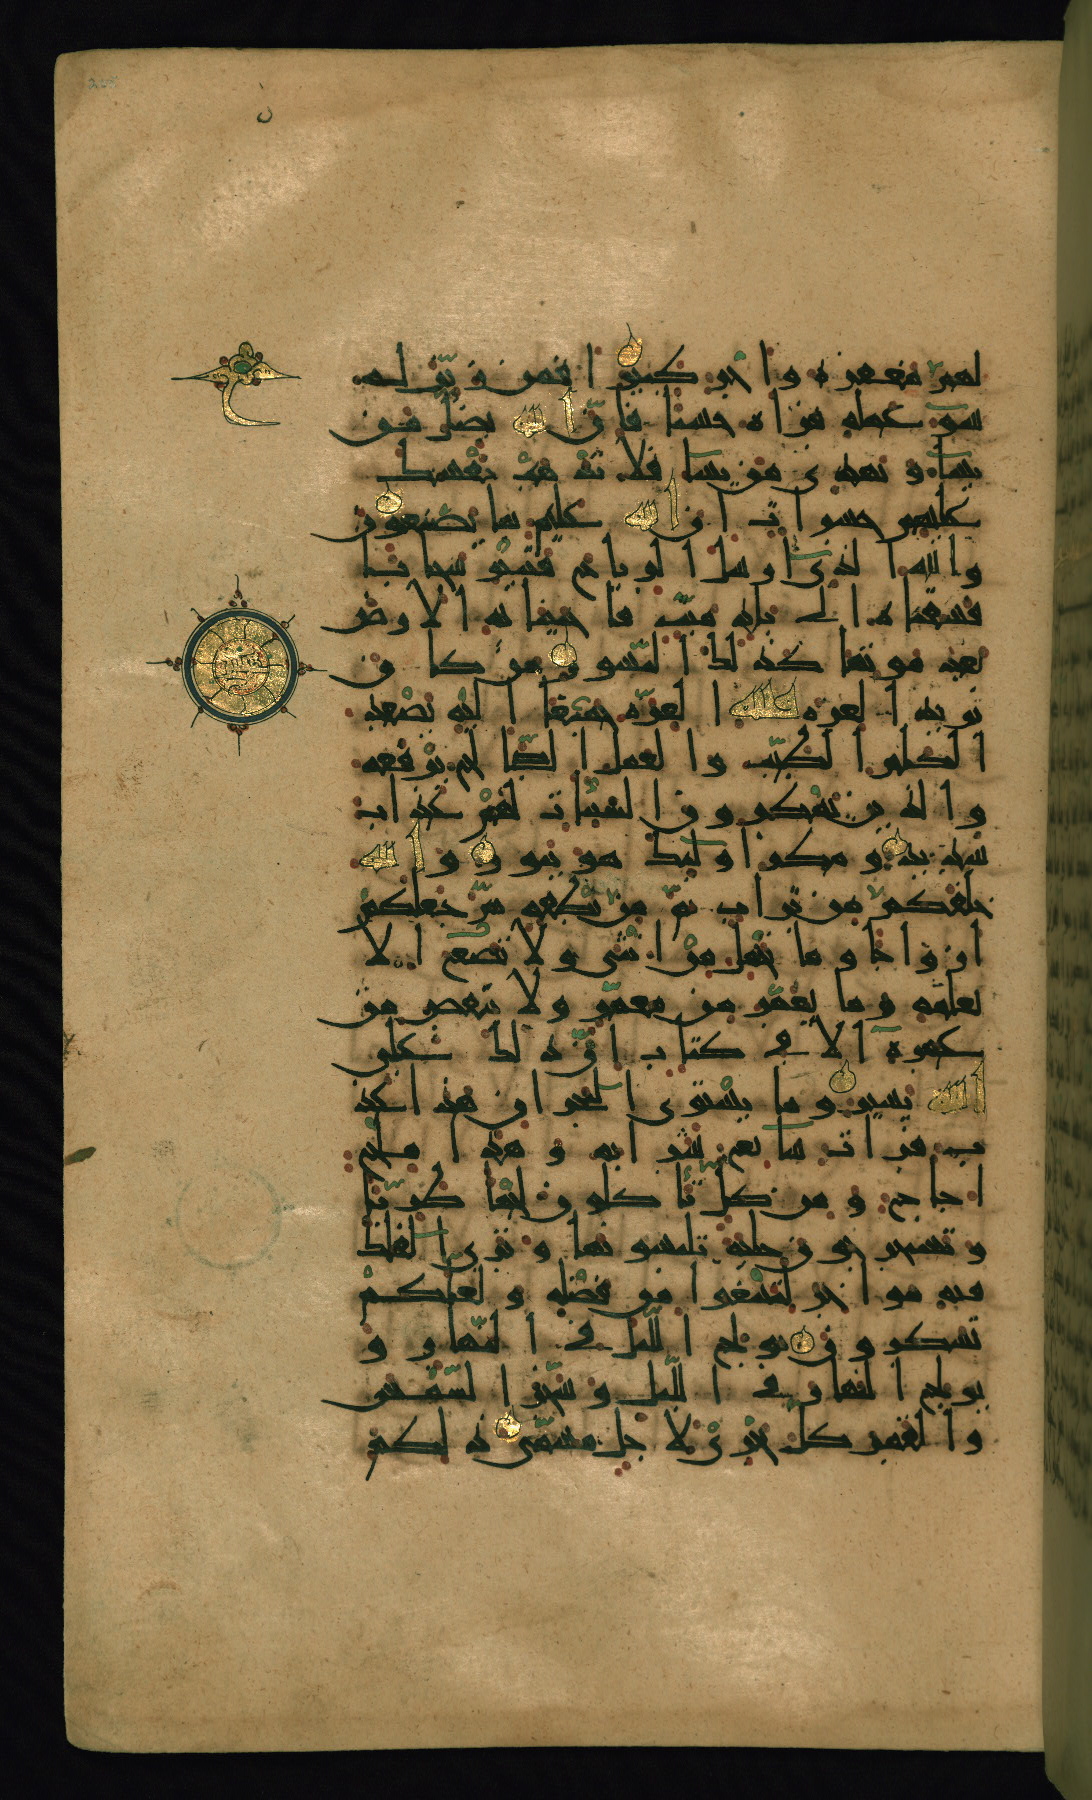 لهم مغفرة واجر كبير افمن زين له
سوء عمله فراه حسنا فان الله يضل من
يشاء ويهدى من يشاء فلا تذهب نفسك
عليهم حسرات ان الله عليم بما يصنعون
والله الذى ارسل الرياح فتثير سحابا
فسقناه الى بلد ميت فاحيينا به الارض
بعد موتها كذلك النشور من كان
يريد العزة فلله العزة جميعا اليه يصعد
الكلم الطيب والعمل الصالح يرفعه
والذين يمكرون السيئات لهم عذاب
شديد ومكر اولئك هو يبور والله
خلقكم من تراب ثم من نطفة ثم جعلكم
ازواجا وما تحمل من انثى ولا تضع الا
بعلمه وما يعمر من معمر ولا ينقص من
عمره الا في كتاب ان ذلك على
الله يسير وما يستوى البحران هذا عذ
ب فرات سائغ شرابه وهذا ملح
اجاج ومن كل تاكلون لحما طريا
وتستخرجون حلية تلبسونها وترى الفلك
فيه مواخر لتبتغوا من فضله ولعلكم
تشكرون يولج الليل في النهار و
يولج النهار في الليل وسخر الشمس
والقمر كل يجرى لاجل مسمى ذلكم